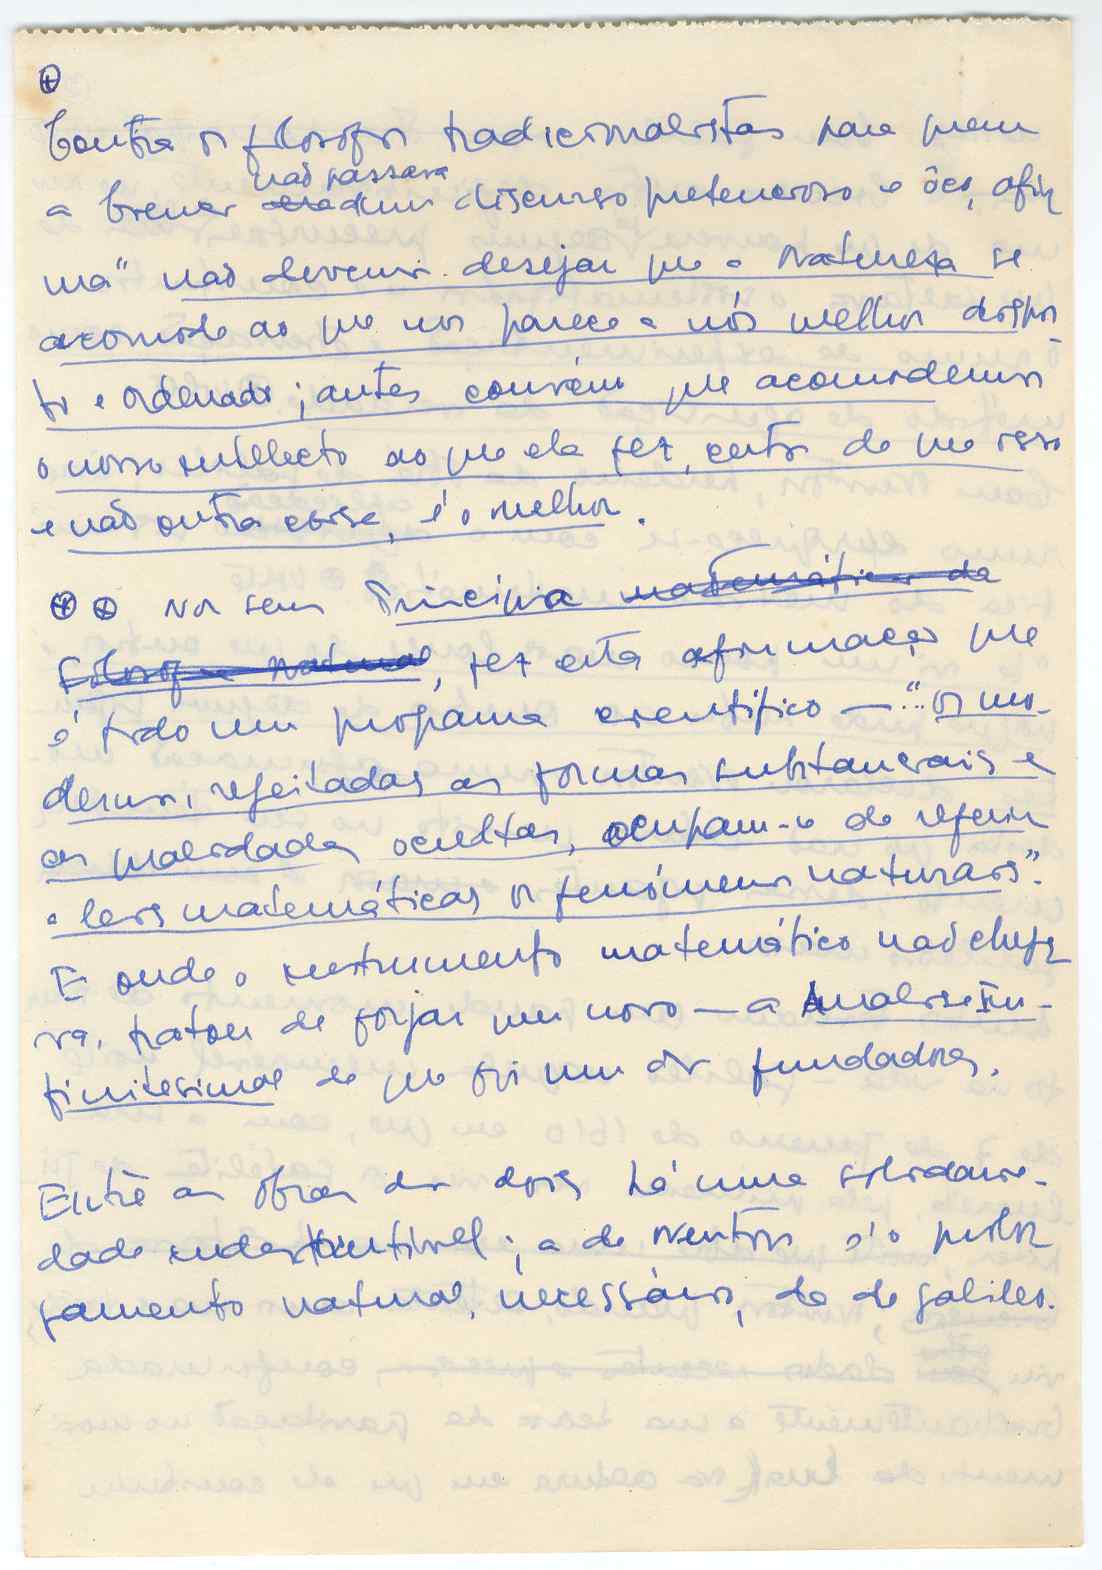 ⊕
Contra os filósofos tradicionalistas para quem
não passava
a ciência dum discurso pretencioso e ôco, afir
ma "não devemos desejar que a Natureza se
acomode ao que nos parece a nós melhor dispos
to e ordenado; antes convém que acomodemos
o nosso intellecto ao que ela fez, certos de que isso
e não outra coisa, é o melhor.
⊕ ⊕ Nos seus Principia matemáticos da
Filosofia natural, fez esta afirmação que
é todo um programa científico — "os mo-
dernos, rejeitadas as formas substanciais e
as qualidades ocultas, ocupam-se de referir
a leis matemáticas os fenómenos naturais".
E onde o instrumento matemático não chega
va, tratou de forjar um novo — a Análise In-
finitesimal de que foi um dos fundadores.
Entre as obras dos dois há uma solidarie-
dade indestrutível; a de Newton é o prolon
gamento natural, necessário, da de Galileo.